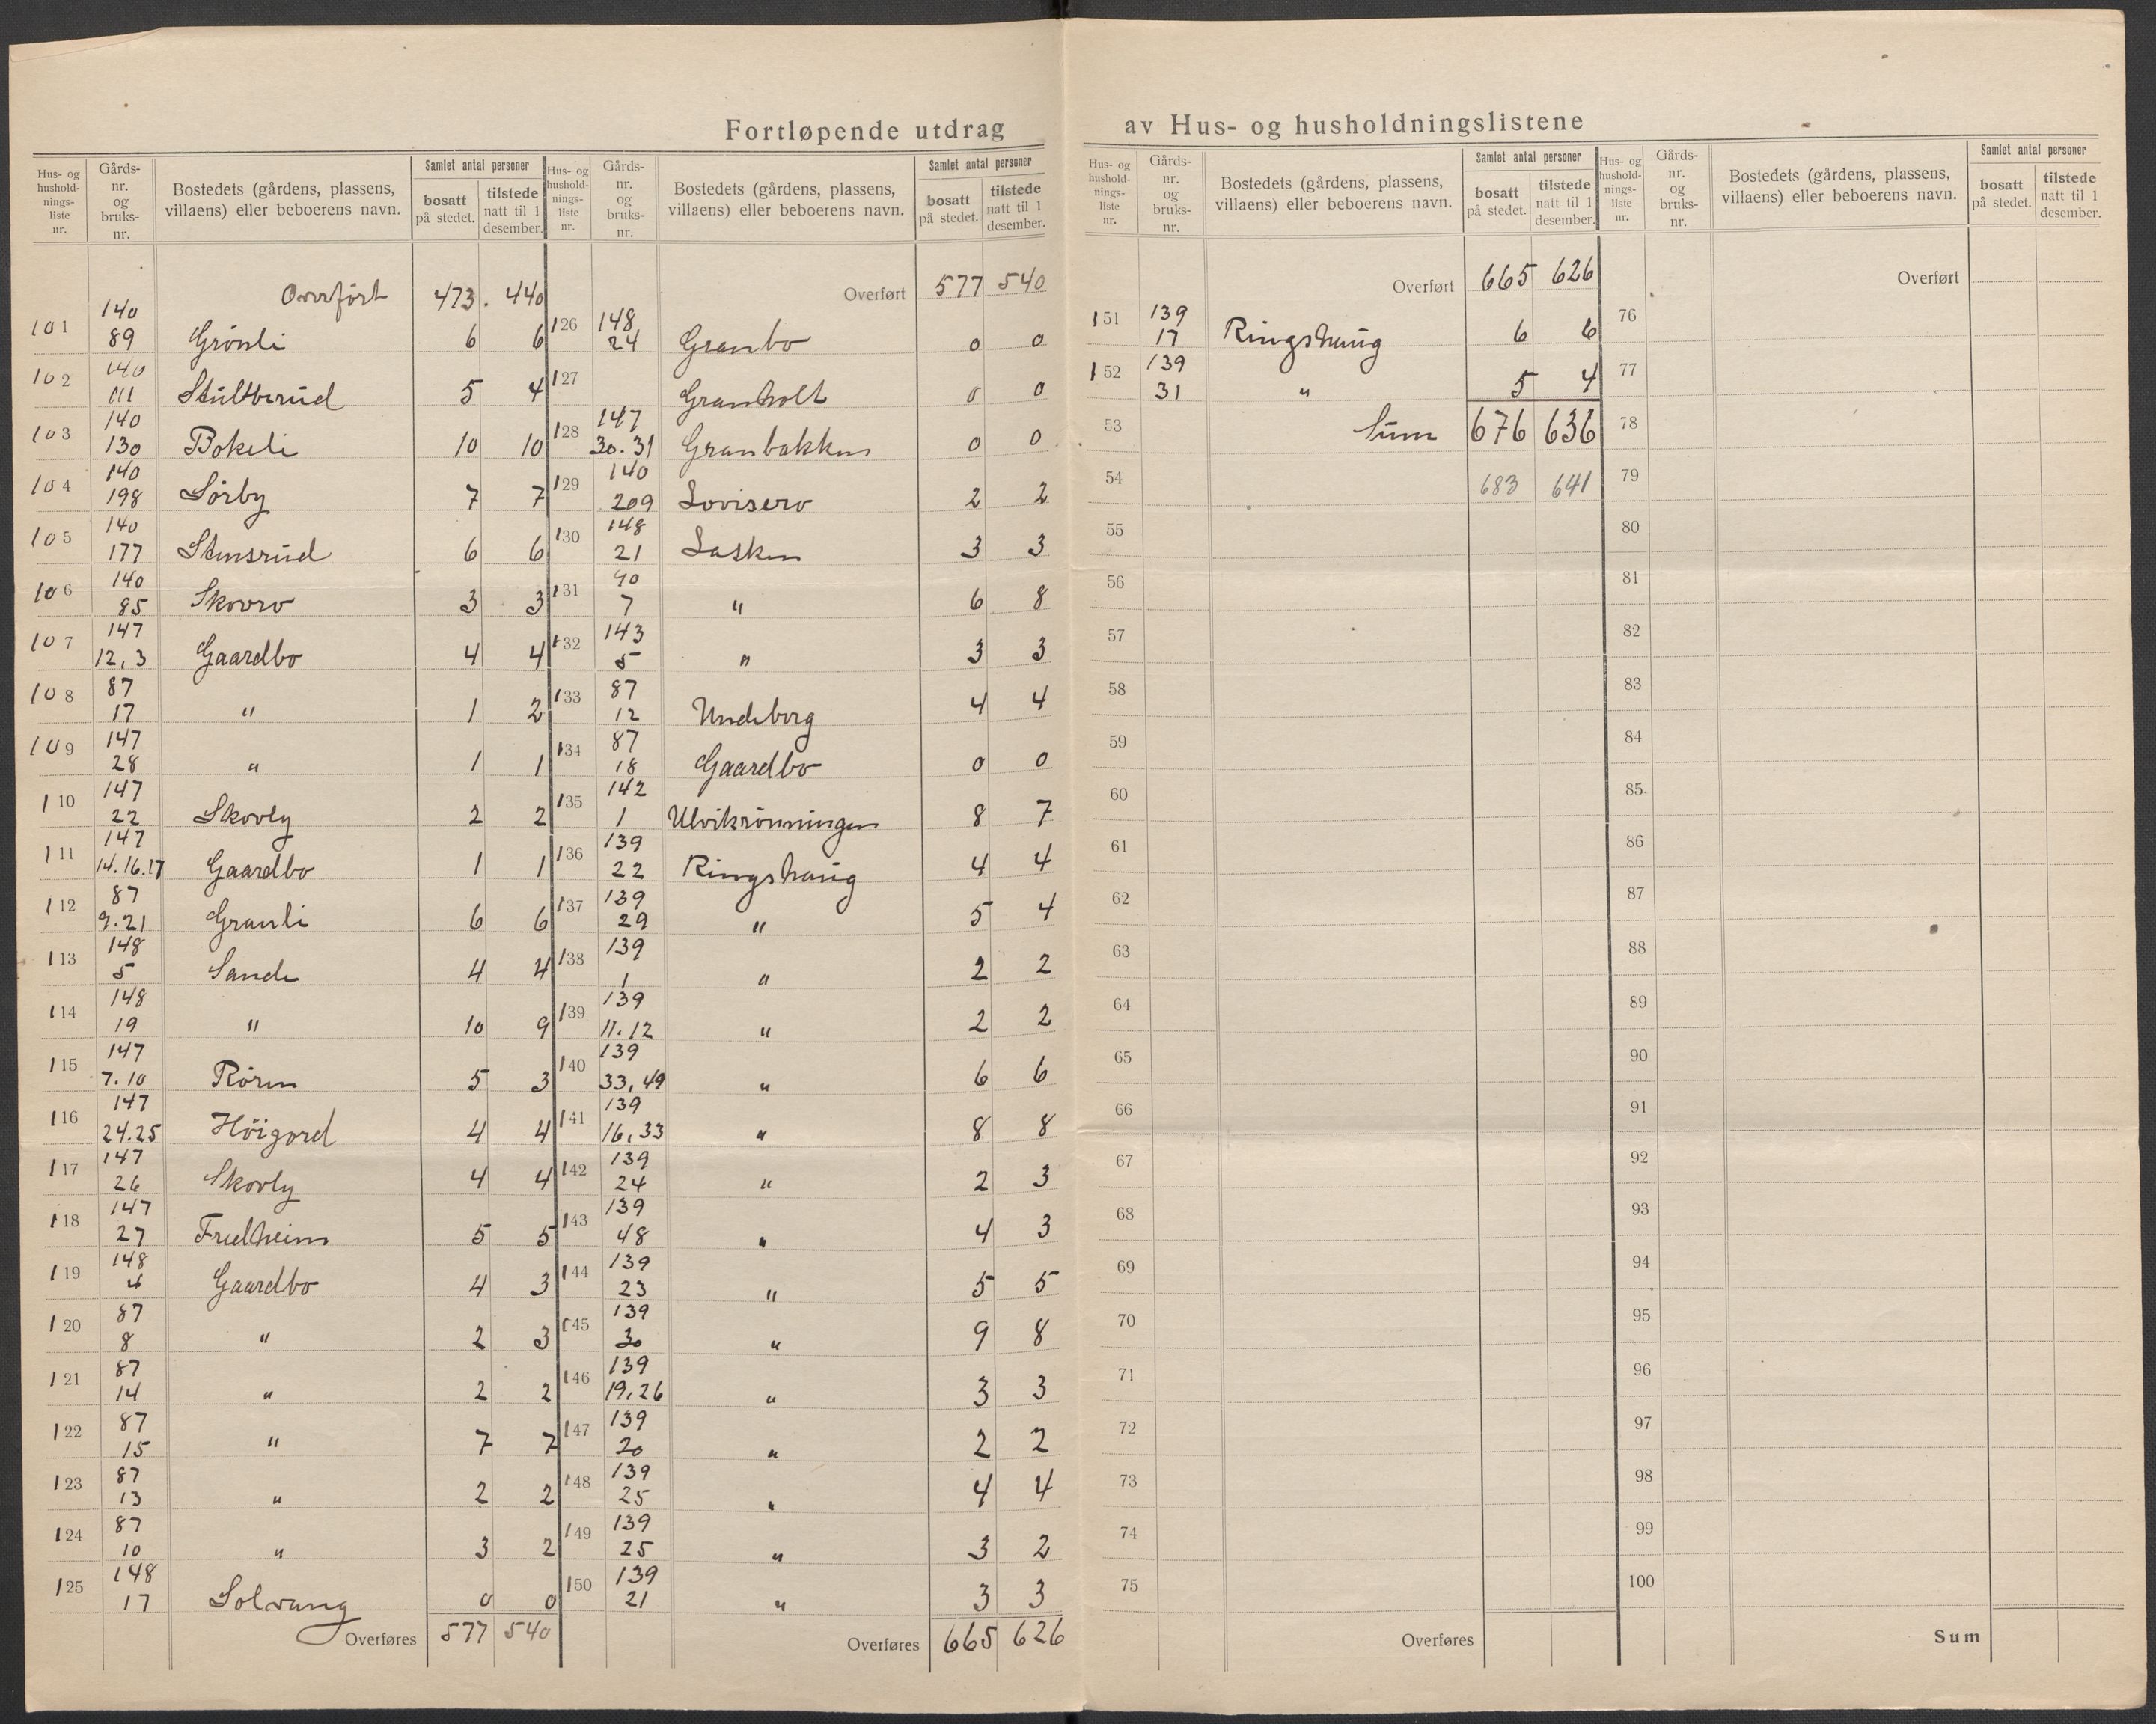 Fortløpende utdrag av Hus- og husholdningslistene
Hus- og husholdningsliste nr. | Gårds-nr. og bruks-nr. | Bostedets (gårdens, plassens, villaens) eller beboerens navn. | Samlet antal personer | bosatt på stedet. | tilstede natt til 1 desember.
Overført 473. 440
101 140 89 Grønli 6 6
102 140 111 Stultbrud 5 4
103 140 130 Bokeli 10 10
104 140 198 Sørby 7 7
105 140 177 Stensrud 6 6
106 140 85 Skovro 3 3
107 147 12,3 Gaardbo 4 4
108 87 17 " 1 2
109 147 28 " 1 1
110 147 22 Skovly 2 2
111 147 14.16.17 Gaardbo 1 1
112 87 9.21 Granli 6 6
113 148 5 Sande 4 4
114 148 19 " 10 9
115 147 7.10 Røren 5 3
116 147 24.25 Höigord 4 4
117 147 26 Skovly 4 4
118 147 27 Fredheim 5 5
119 148 4 Gaardbo 4 3
120 87 8 " 2 3
121 87 14 " 2 2
122 87 15 " 7 7
123 87 13 " 2 2
124 87 10 " 3 2
125 148 17 Solvang 0 0
Overføres 577 540
Hus- og husholdningsliste nr. | Gårds-nr. og bruks-nr. | Bostedets (gårdens, plassens, villaens) eller beboerens navn. | Samlet antal personer | bosatt på stedet. | tilstede natt til 1 desember.
Overført 577 540
126 148 24 Granbo 0 0
127 Granholt 0 0
128 147 30.31 Granbakken 0 0
129 140 209 Lovisero 2 2
130 148 21 Lasken 3 3
131 90 7 " 6 8
132 143 5 " 3 3
133 87 12 Undeborg 4 4
134 87 18 Gaardbo 0 0
135 142 1 Ulvikrønningen 8 7
136 139 22 Ringshaug 4 4
137 139 29 " 5 4
138 139 1 " 2 2
139 139 11.12 " 2 2
140 139 33,49 " 6 6
141 139 16,33 " 8 8
142 139 24 " 2 3
143 139 48 " 4 3
144 139 23 " 5 5
145 139 30 " 9 8
146 139 19,26 " 3 3
147 139 20 " 2 2
148 139 25 " 4 4
149 139 25 " 3 2
150 139 21 " 3 3
Overføres 665 626
Hus- og husholdningsliste nr. | Gårds-nr. og bruks-nr. | Bostedets (gårdens, plassens, villaens) eller beboerens navn. | Samlet antal personer | bosatt på stedet. | tilstede natt til 1 desember.
Overført 665 626
151 139 17 Ringshaug 6 6
152 139 31 " 5 4
53 Sum 676 636
54 683 641
55
56
57
58
59
60
61
62
63
64
65
66
67
68
69
70
71
72
73
74
75
Overføres
Hus- og husholdningsliste nr. | Gårds-nr. og bruks-nr. | Bostedets (gårdens, plassens, villaens) eller beboerens navn. | Samlet antal personer | bosatt på stedet. | tilstede natt til 1 desember.
Overført
76
77
78
79
80
81
82
83
84
85.
86
87
88
89
90
91
92
93
94
95
96
97
98
99
100
Sum